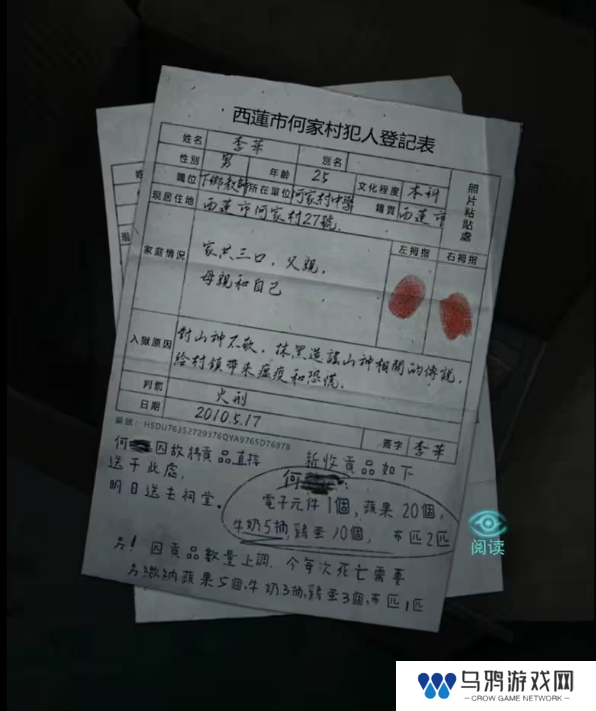 西蓮市何家村犯人登記表
姓名 李華 別名
性別 男 年齡 25 文化程度 本科
職位 下鄉教師 所在單位 何家村中學 籍貫 西蓮市
現居住地 西蓮市何家村27號
照片粘貼處
家庭情況 家共三口，父親， 左拇指 右拇指
母親和自己
入獄原因 對山神不敬，抹黑造謠山神相關的傳說，
給村鎮帶來瘟疫和恐慌，
判罰 火刑
日期 2010.5.17
簽字 李華
何 因故將貢品直接
送于此處，
明日送去祠堂。
新收貢品如下
何
電子元件1個，蘋果20個，
牛奶5抽，雞蛋10個， 布匹2匹
另！因貢品數量上調，今每次死亡需要
另繳納蘋果5個，牛奶3抽，雞蛋3個，布匹1匹
阅读
乌鸦游戏网
CROW GAME NETWORK